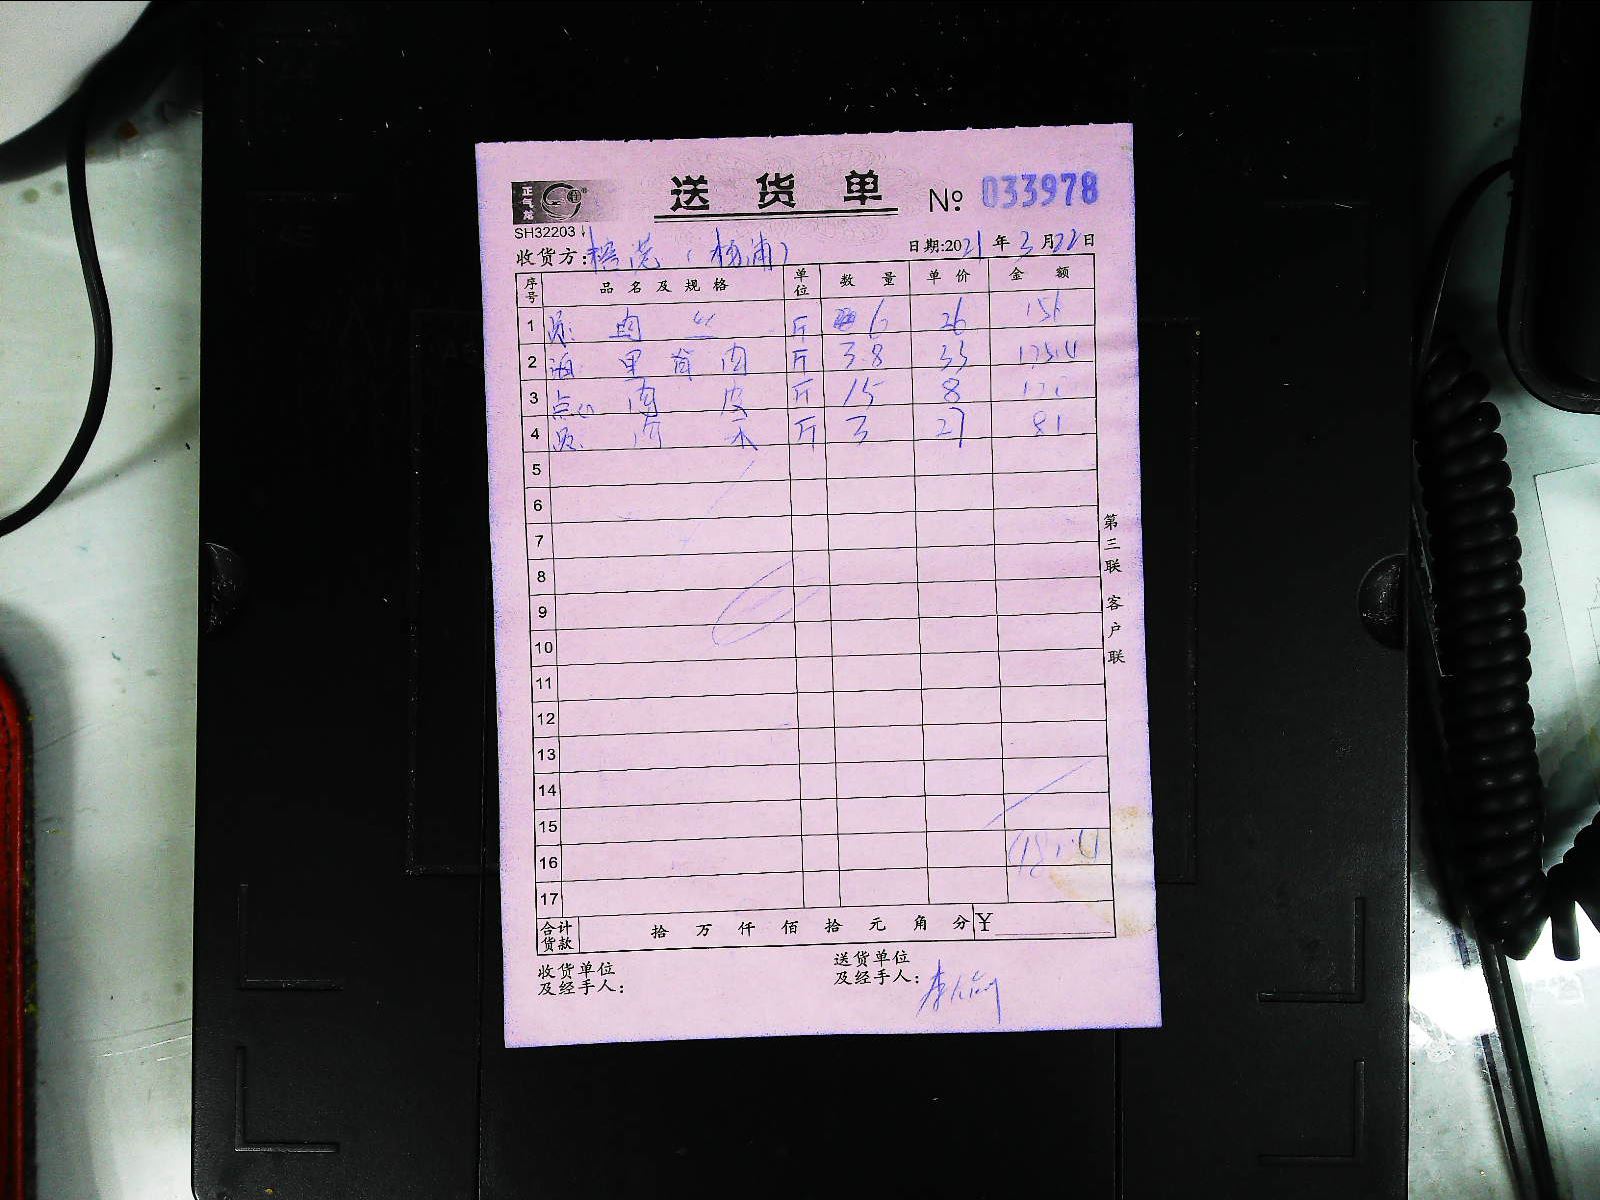 正气龙
送货单 № 033978
SH32203
收货方: (杨浦) 日期:2021年3月22日
序号 品名及规格 单位 数量 单价 金额
1 肉丝 斤 6 26 156
2 里脊肉 斤 3.8 33 125.4
3 点心 肉皮 斤 15 8 120
4 肉 斤 3 27 81
5
6
7
8
9
10
11
12
13
14
15
16
17
合计货款 拾 万 仟 佰 拾 元 角 分 ¥
收货单位及经手人:
送货单位及经手人:
第三联 客户联